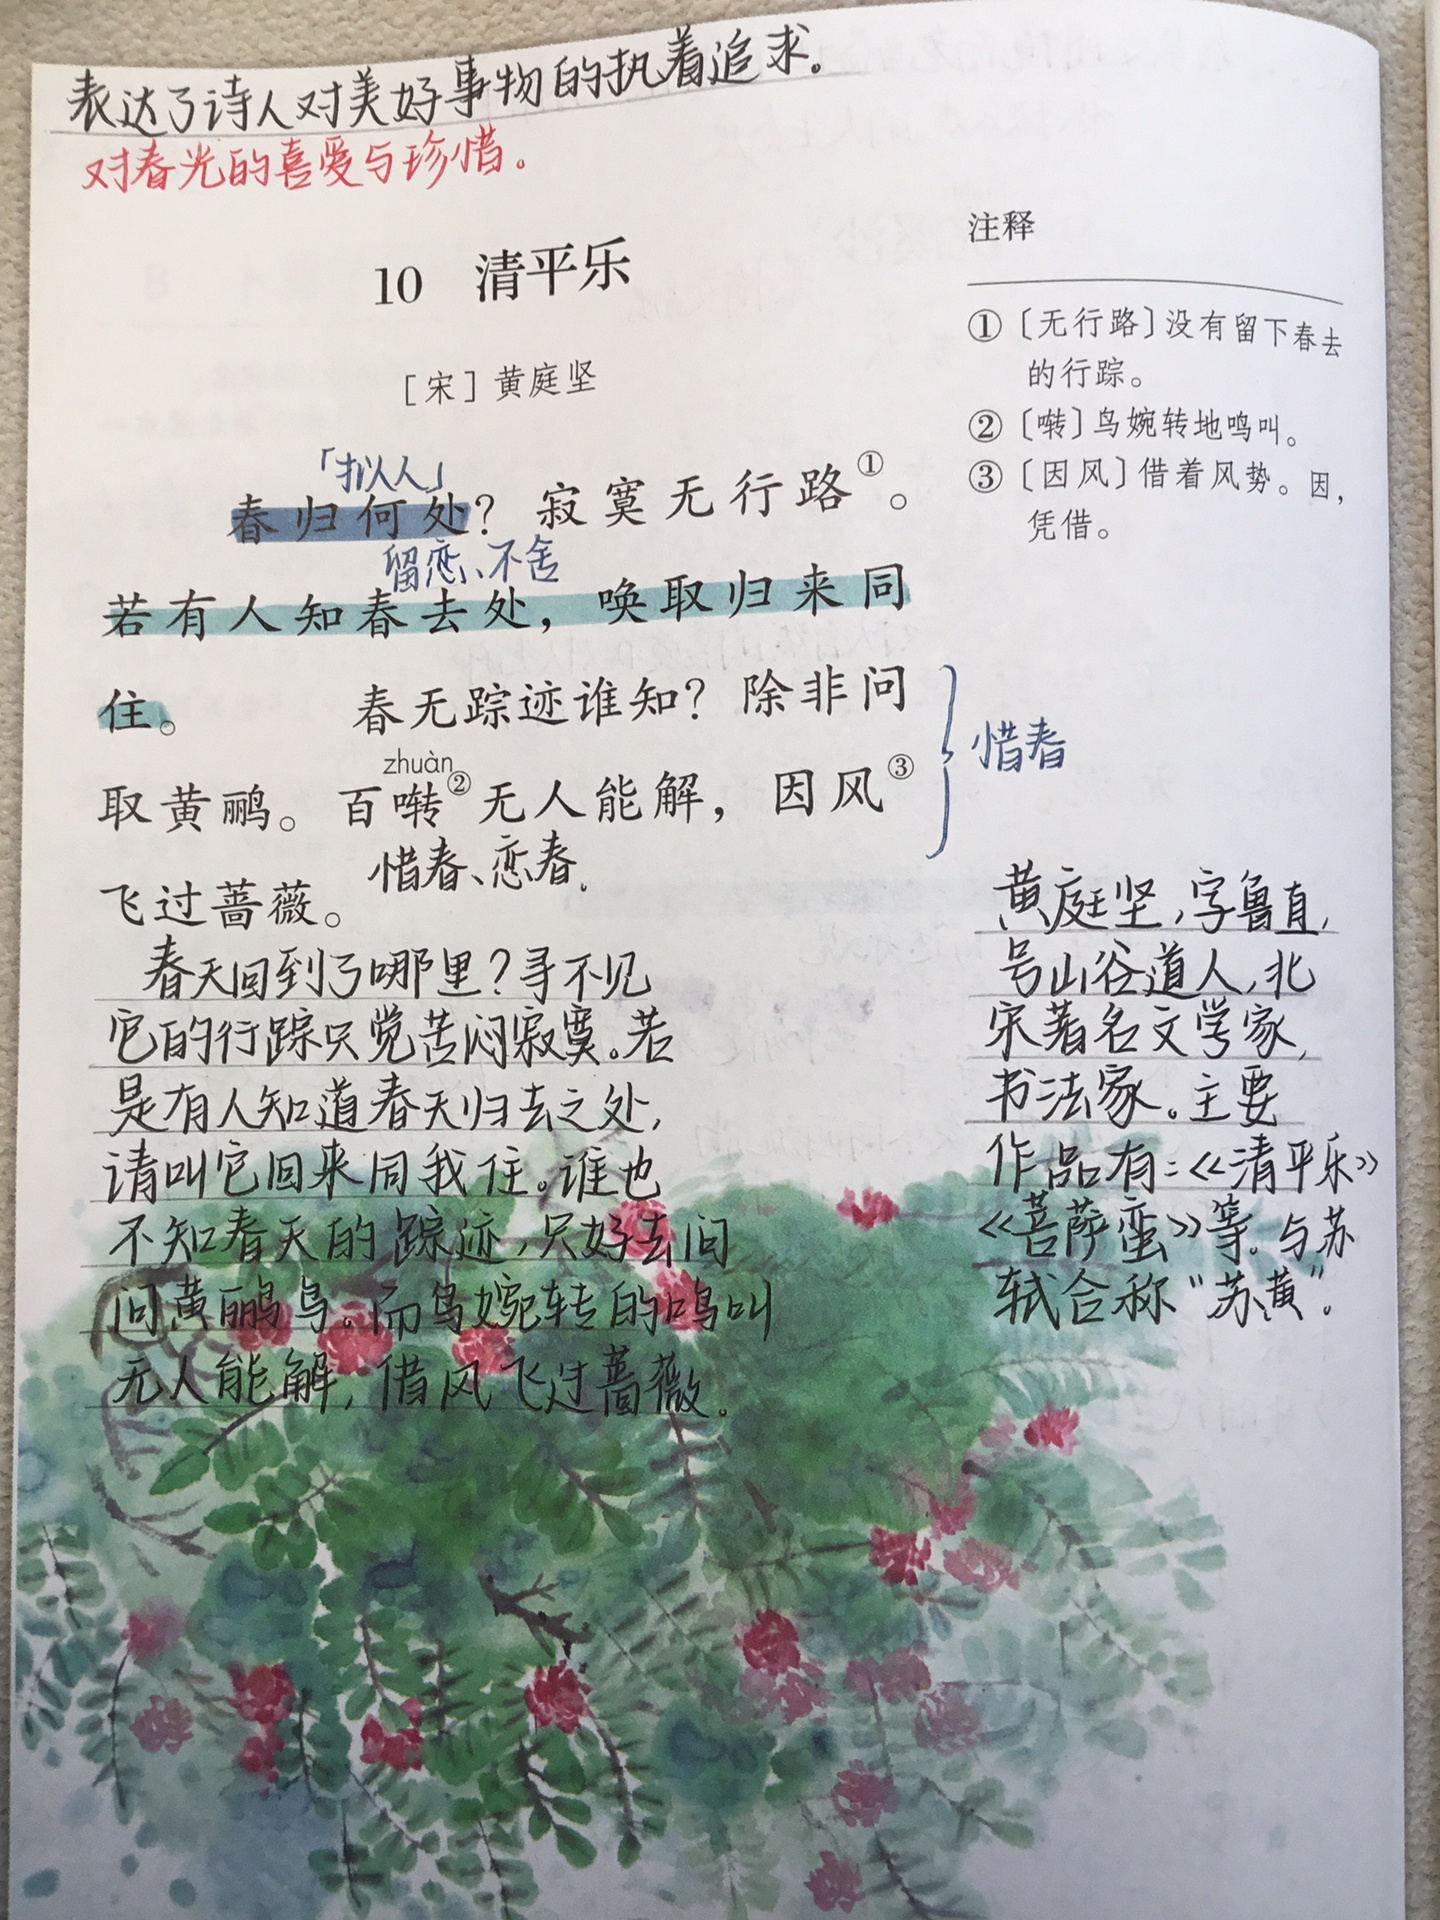 表达了诗人对美好事物的执着追求。
对春光的喜爱与珍惜。
10 清平乐
［宋］黄庭坚
「拟人」
春归何处？寂寞无行路①。
留恋、不舍
若有人知春去处，唤取归来同
住。 春无踪迹谁知？除非问
zhuàn
取黄鹂。百啭②无人能解，因风③
惜春、恋春。
飞过蔷薇。
惜春
春天回到了哪里？寻不见
它的行踪只觉苦闷寂寞。若
是有人知道春天归去之处，
请叫它回来同我住。谁也
不知春天的踪迹，只好去问
问黄鹂鸟。而鸟婉转的鸣叫
无人能解，借风飞过蔷薇。
注释
①〔无行路〕没有留下春去
的行踪。
②〔啭〕鸟婉转地鸣叫。
③〔因风〕借着风势。因，
凭借。
黄庭坚，字鲁直，
号山谷道人，北
宋著名文学家，
书法家。主要
作品有：《清平乐》
《菩萨蛮》等。与苏
轼合称“苏黄”。